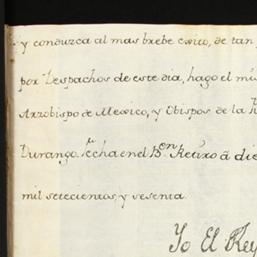 y conduzca al mas brebe exito, de tan
por Despachos de este dia, hago el mis
Arzobispo de Mexico, y Obispos de la
Durango. fcha en el Bn Retiro â die
mil setecientos, y sesenta.
Yo El Rey